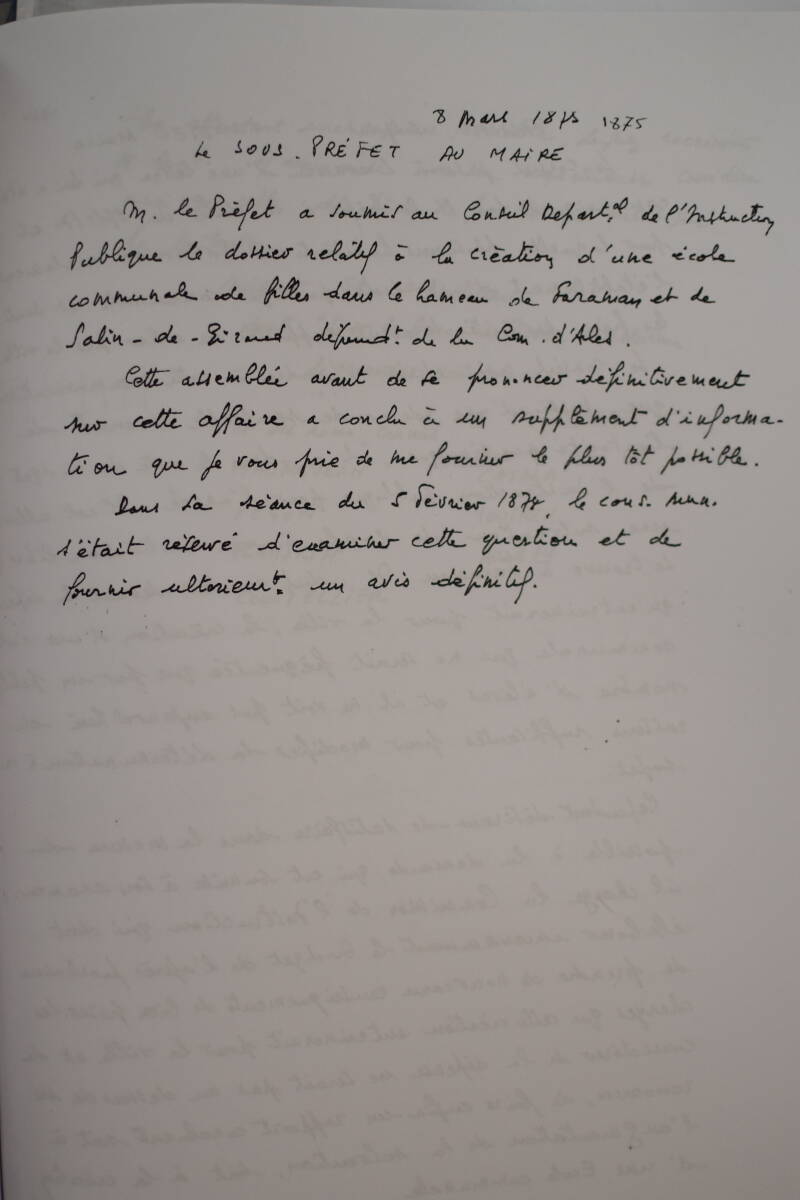 8 Mars 1875 1875
Le SOUS-PRÉFET AU MAIRE
M. le Préfet a soumis au Conseil Départ.al de l'Instruction
Publique le dossier relatif à la création d'une école
communale de filles dans le hameau de Faraman et de
Salin-de-Giraud dépendt. de la Com. d'Arles.
Cette assemblée avant de se prononcer définitivement
sur cette affaire a conclu à un supplément d'informa-
tion que je vous prie de me fournir le plus tôt possible.
Dans sa séance du 5 Février 1874, le cons. mun.
s'était réservé d'examiner cette question et de
fournir ultérieurt. un avis définitif.